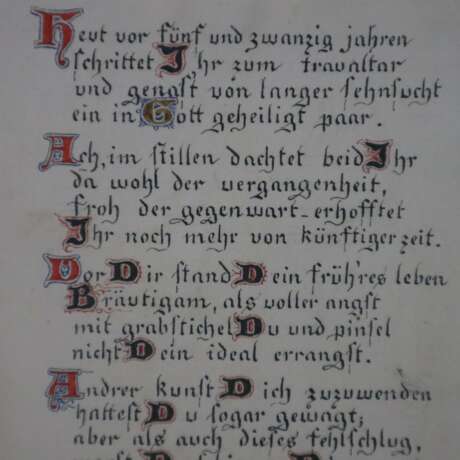 Heut vor fünf und zwanzig jahren
schrittet Ihr zum traualtar
und genast von langer sehnsucht
ein in Gott geheiligt paar.
Ach, im stillen dachtet beid Ihr
da wohl der vergangenheit,
froh der gegenwart-erhofftet
Ihr noch mehr von künftiger zeit.
Vor Dir stand Dein früh'res leben
Bräutigam, als voller angst
mit grabstichel Du und pinsel
nicht Dein ideal errangst.
Andrer kunst Dich zuzuwenden
hattest Du sogar gewagt;
aber als auch dieses fehlschlug,